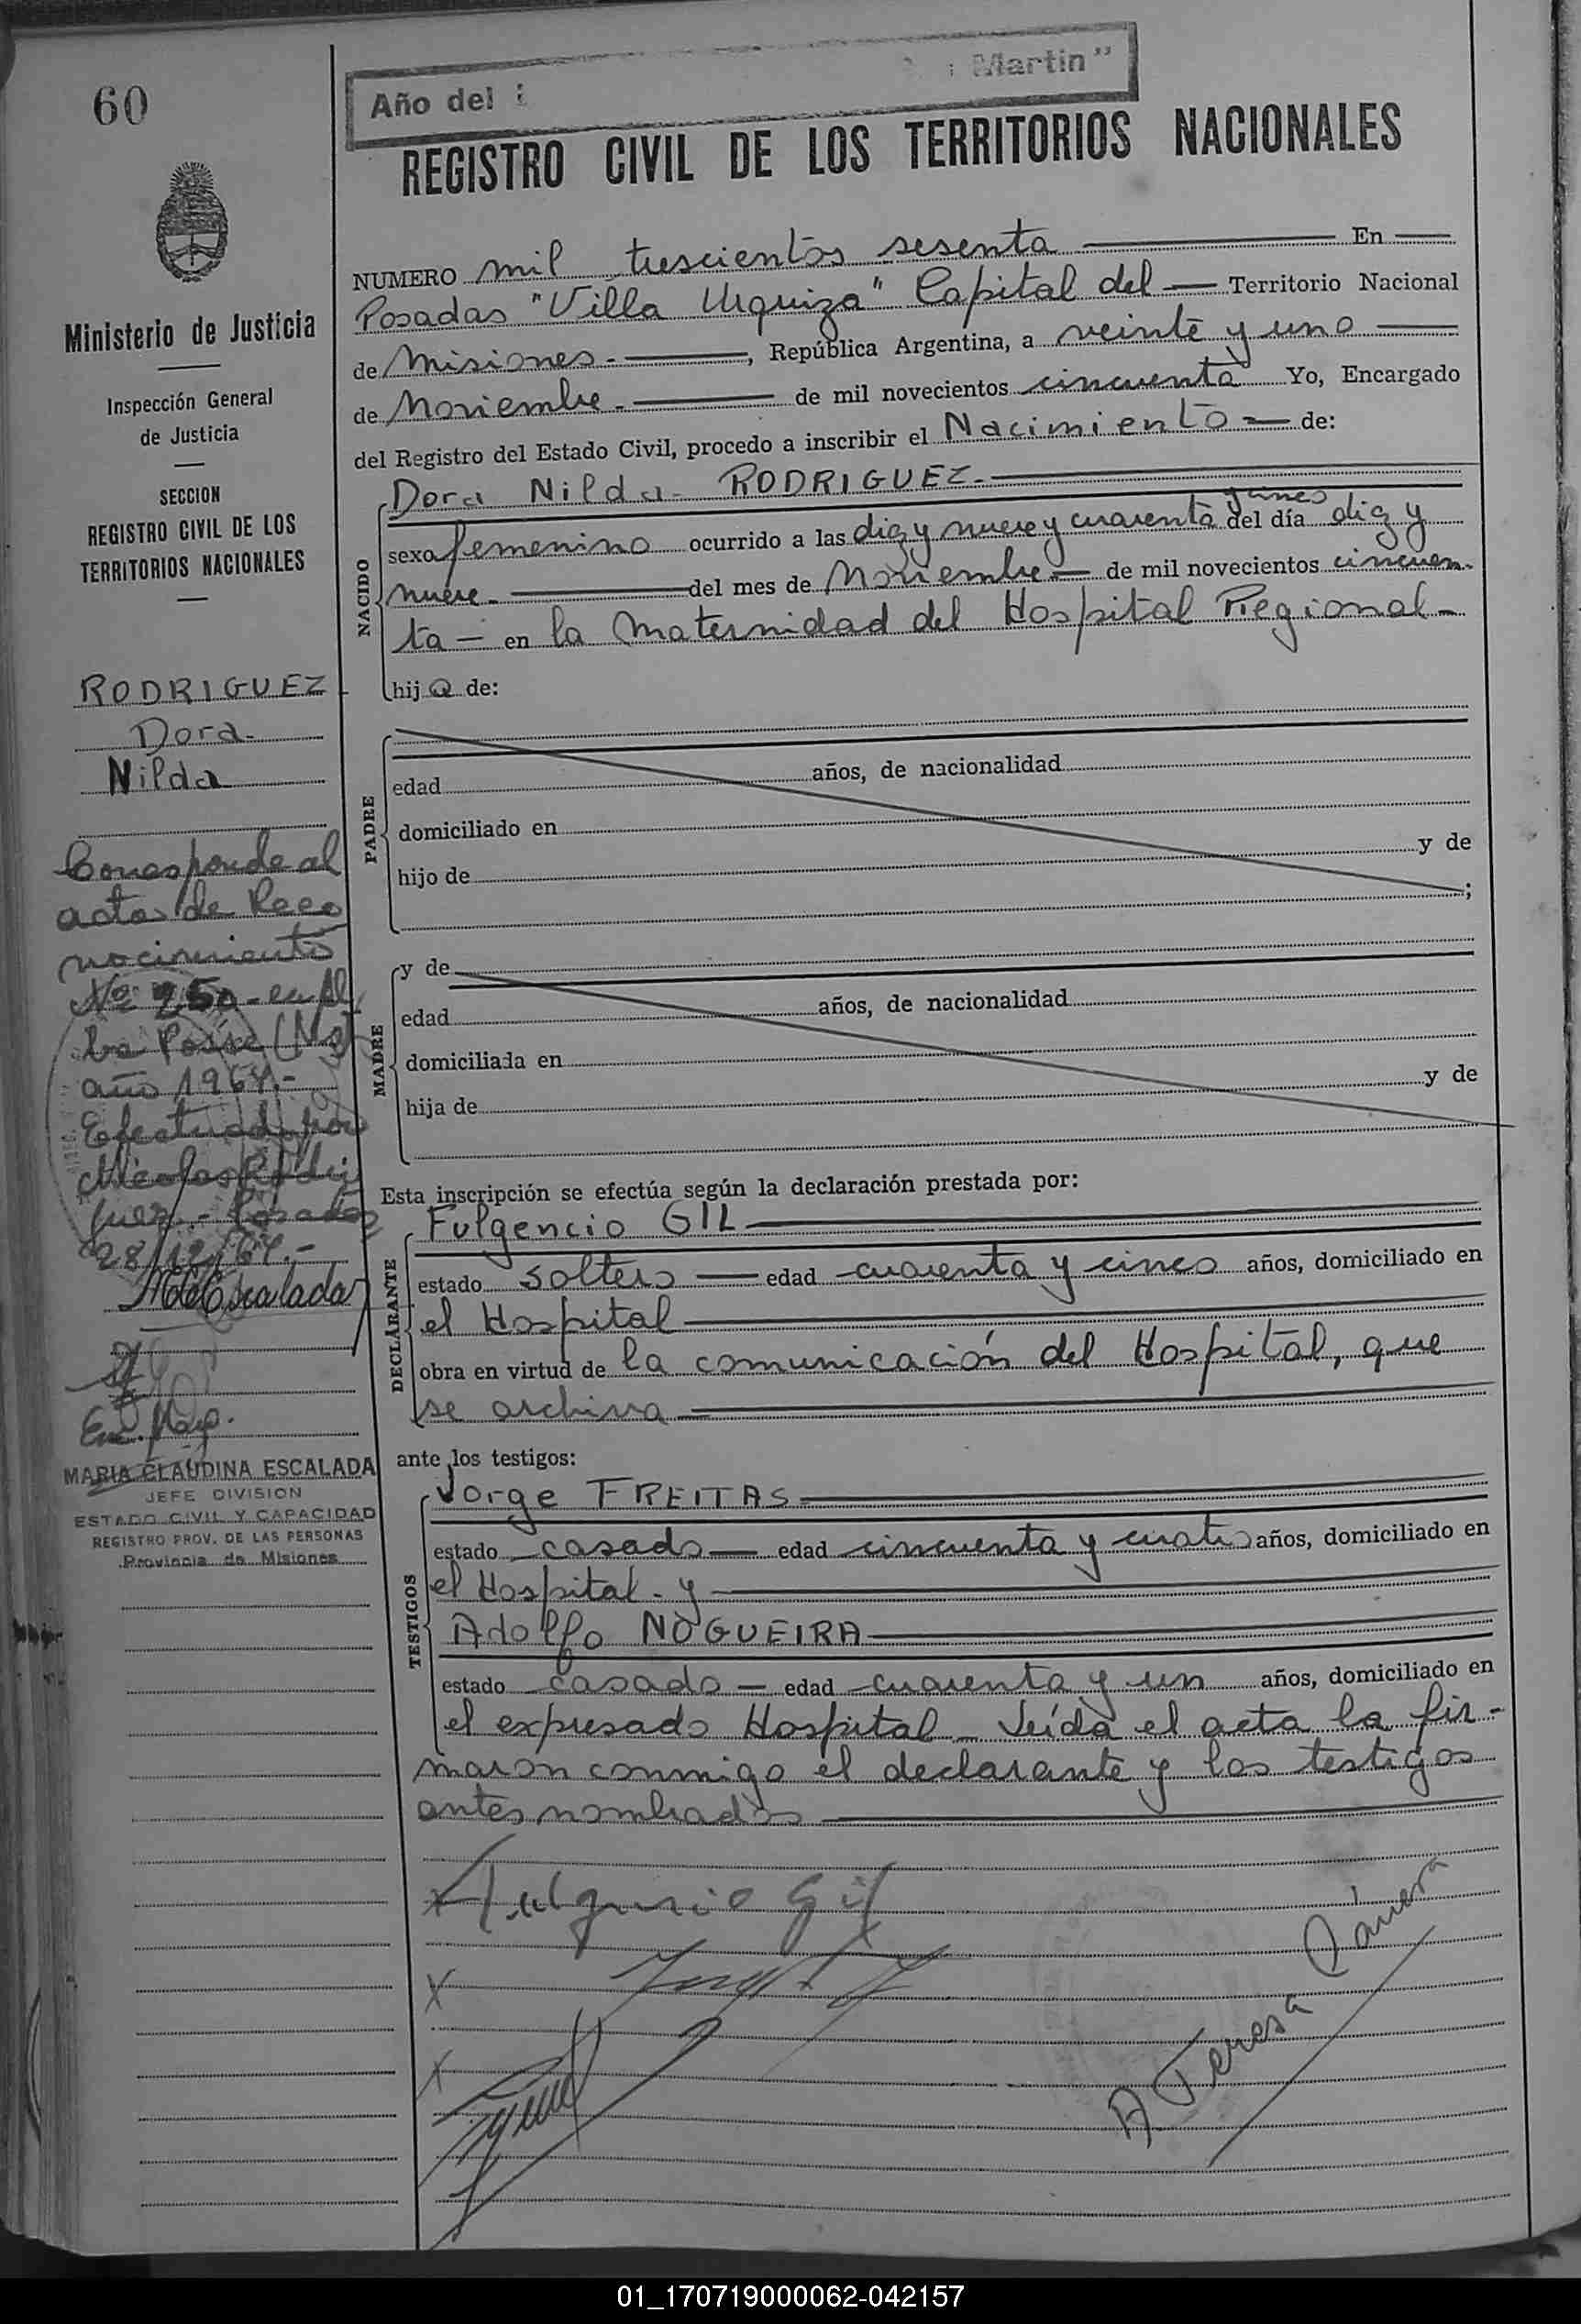 60
Año del
Martín"
REGISTRO CIVIL DE LOS TERRITORIOS NACIONALES
Ministerio de Justicia
Inspección General
de Justicia
SECCION
REGISTRO CIVIL DE LOS
TERRITORIOS NACIONALES
RODRIGUEZ
Dora
Nilda
Corresponde al
acta de Reco
nocimiento
Nº 250 - en Al
ba Posse (Ms)
año 1964.-
Efectuado por
Nicolas Rodri
guez.- Posadas
28/12/64.-
MCEscalada
MARIA CLAUDINA ESCALADA
JEFE DIVISION
ESTADO CIVIL Y CAPACIDAD
REGISTRO PROV. DE LAS PERSONAS
Provincia de Misiones
NUMERO mil trescientos sesenta En
Posadas "Villa Urquiza" Capital del Territorio Nacional
de Misiones.-, República Argentina, a veinte y uno
de Noviembre.- de mil novecientos cincuenta Yo, Encargado
del Registro del Estado Civil, procedo a inscribir el Nacimiento de:
Dora Nilda RODRIGUEZ.-
NACIDO
sexo femenino ocurrido a las diez y nueve y cuarenta del día diez y
nueve.- del mes de Noviembre.- de mil novecientos cincuen-
ta - en la Maternidad del Hospital Regional-
hija de:
PADRE
edad años, de nacionalidad
domiciliado en
hijo de y de
;
MADRE
y de
edad años, de nacionalidad
domiciliada en
hija de y de
Esta inscripción se efectúa según la declaración prestada por:
DECLARANTE
Fulgencio GIL
estado soltero edad cuarenta y cinco años, domiciliado en
el Hospital
obra en virtud de la comunicación del Hospital, que
se archiva
ante los testigos:
TESTIGOS
Jorge FREITAS
estado casado edad cincuenta y cuatro años, domiciliado en
el Hospital - y
Adolfo NOGUEIRA
estado casado - edad cuarenta y un años, domiciliado en
el expresado Hospital - Leída el acta la fir-
maron conmigo el declarante y los testigos
antes nombrados
x Fulgencio Gil
x
x
A Teresa
01_170719000062-042157